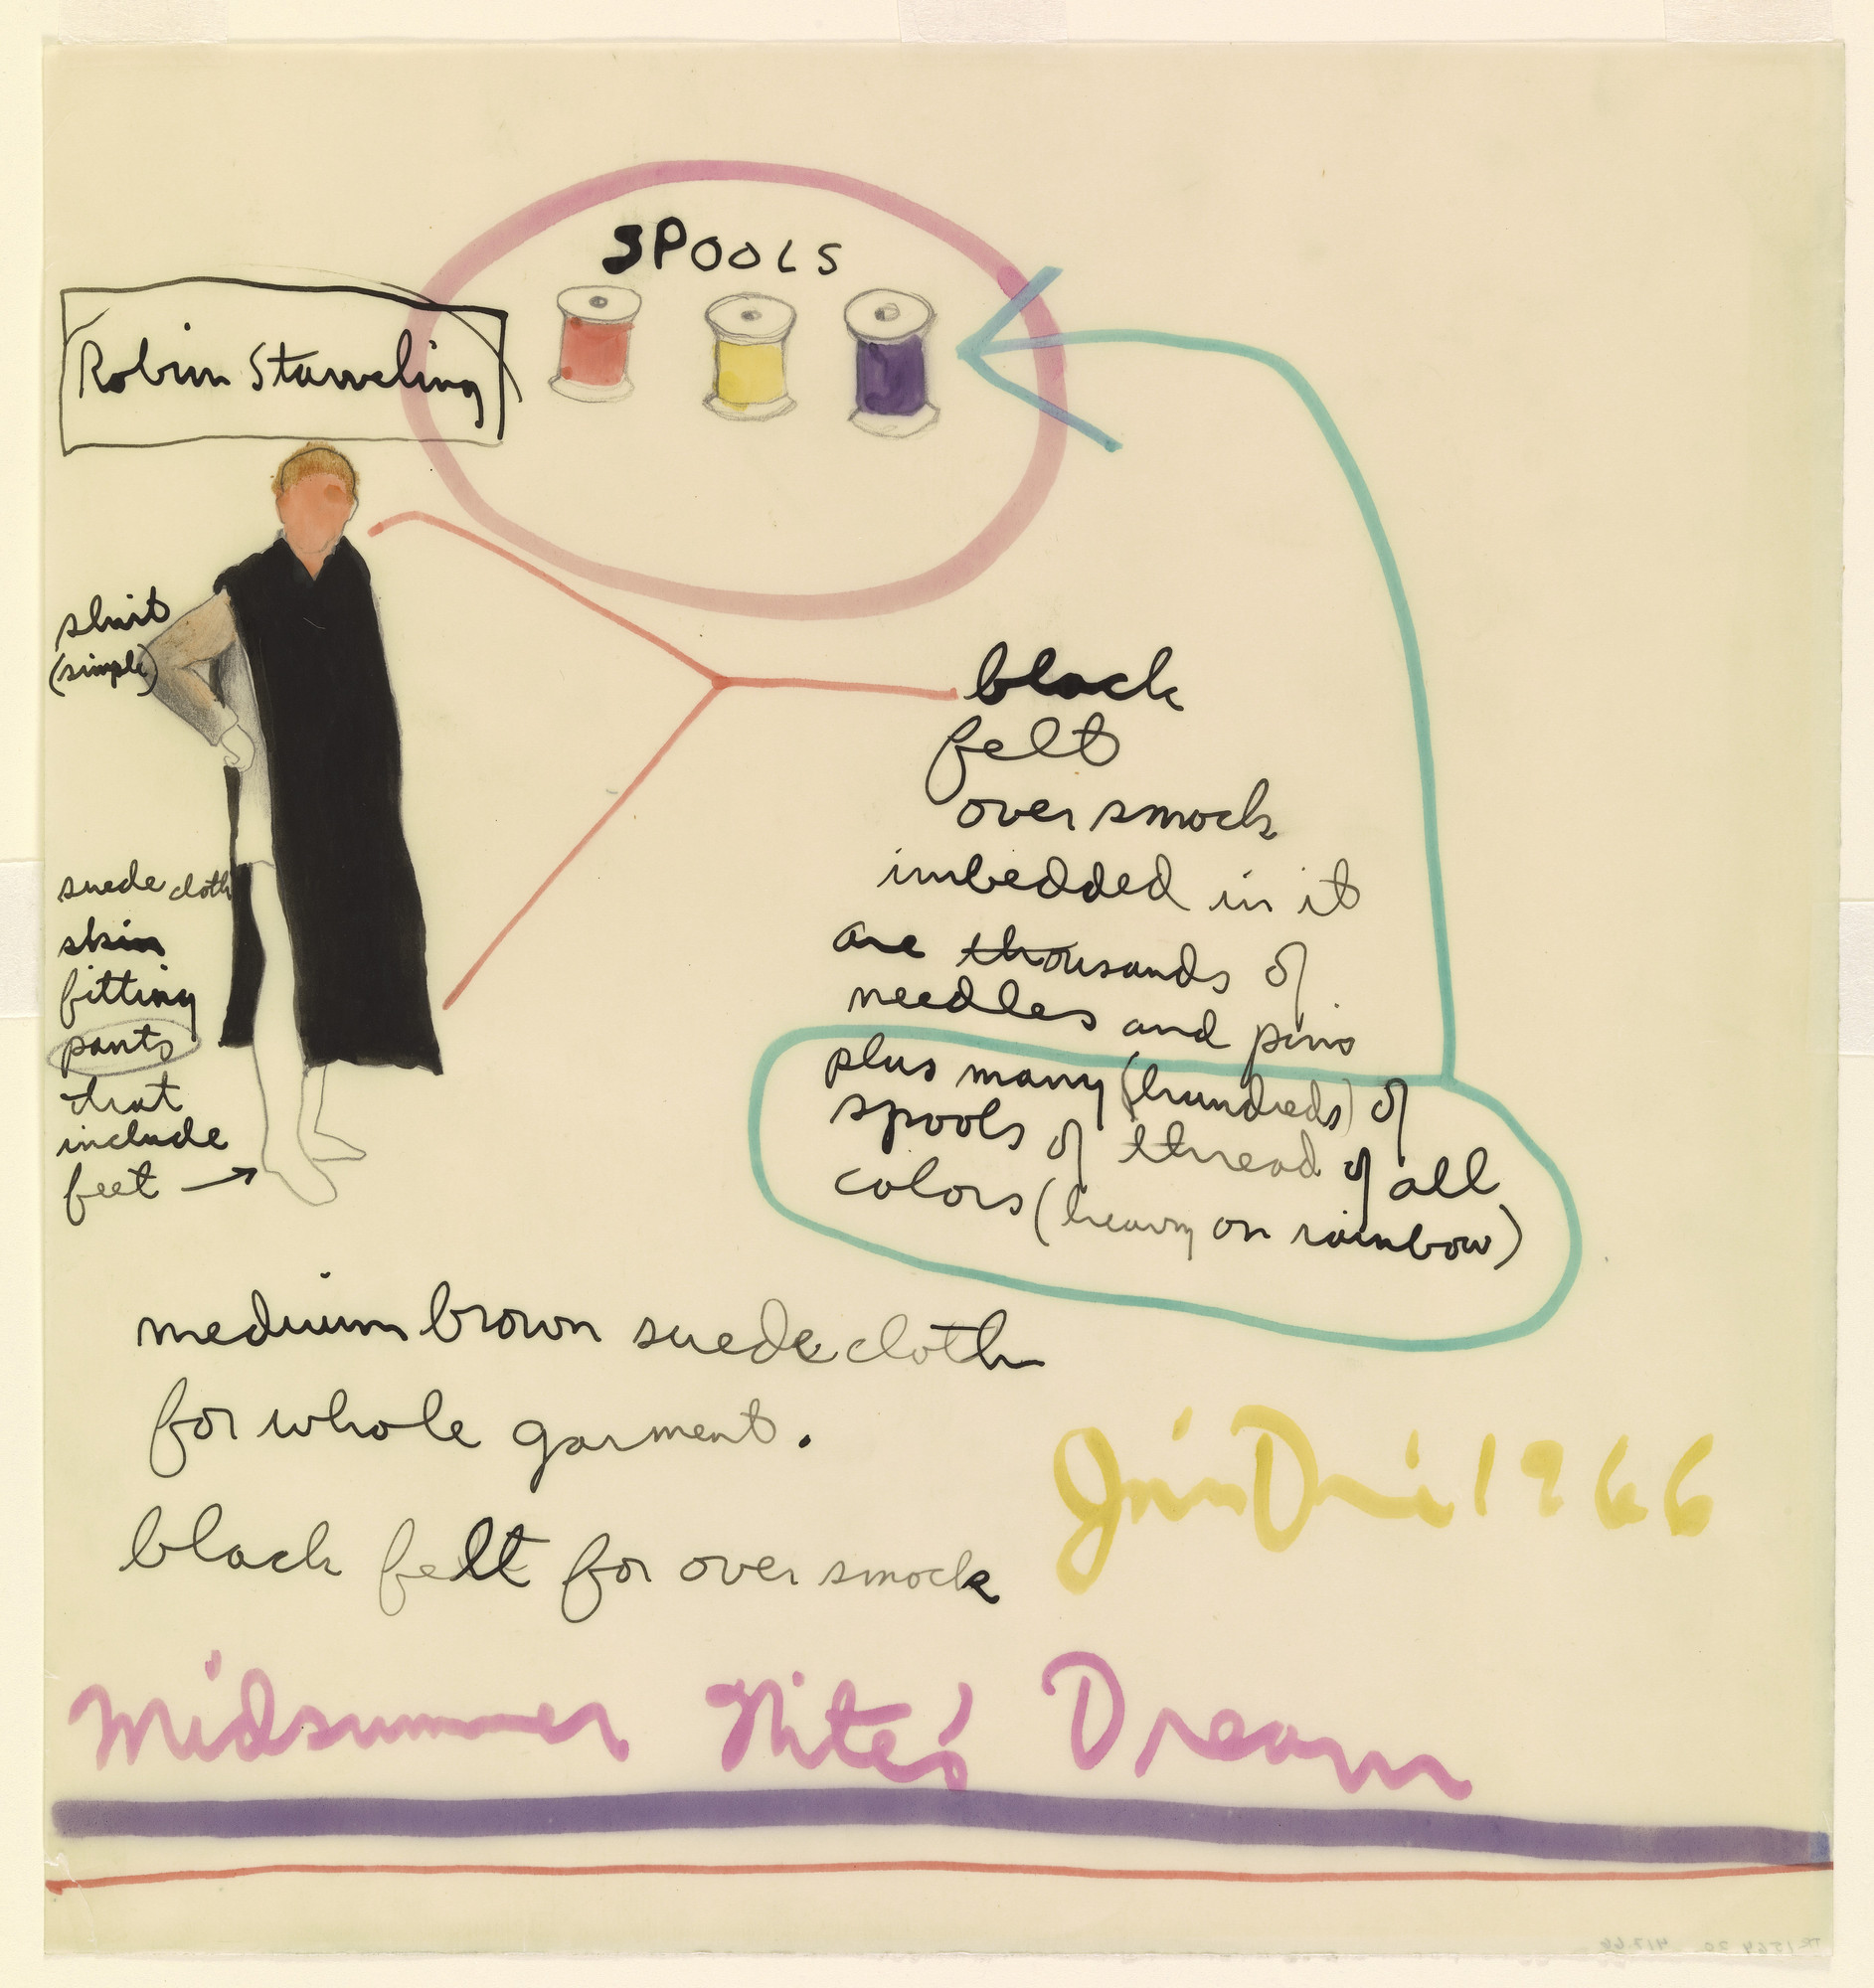 SPOOLS
Robin Starveling
shirt
(simple)
black
felt
over smock
imbedded in it
are thousands of
needles and pins
plus many (hundreds) of
spools of thread of all
colors (heavy on rainbow)
suede cloth
skin
fitting
pants
that
include
feet
medium brown suede cloth
for whole garment.
black felt for over smock
Jim Dine 1966
Midsummer Nite's Dream